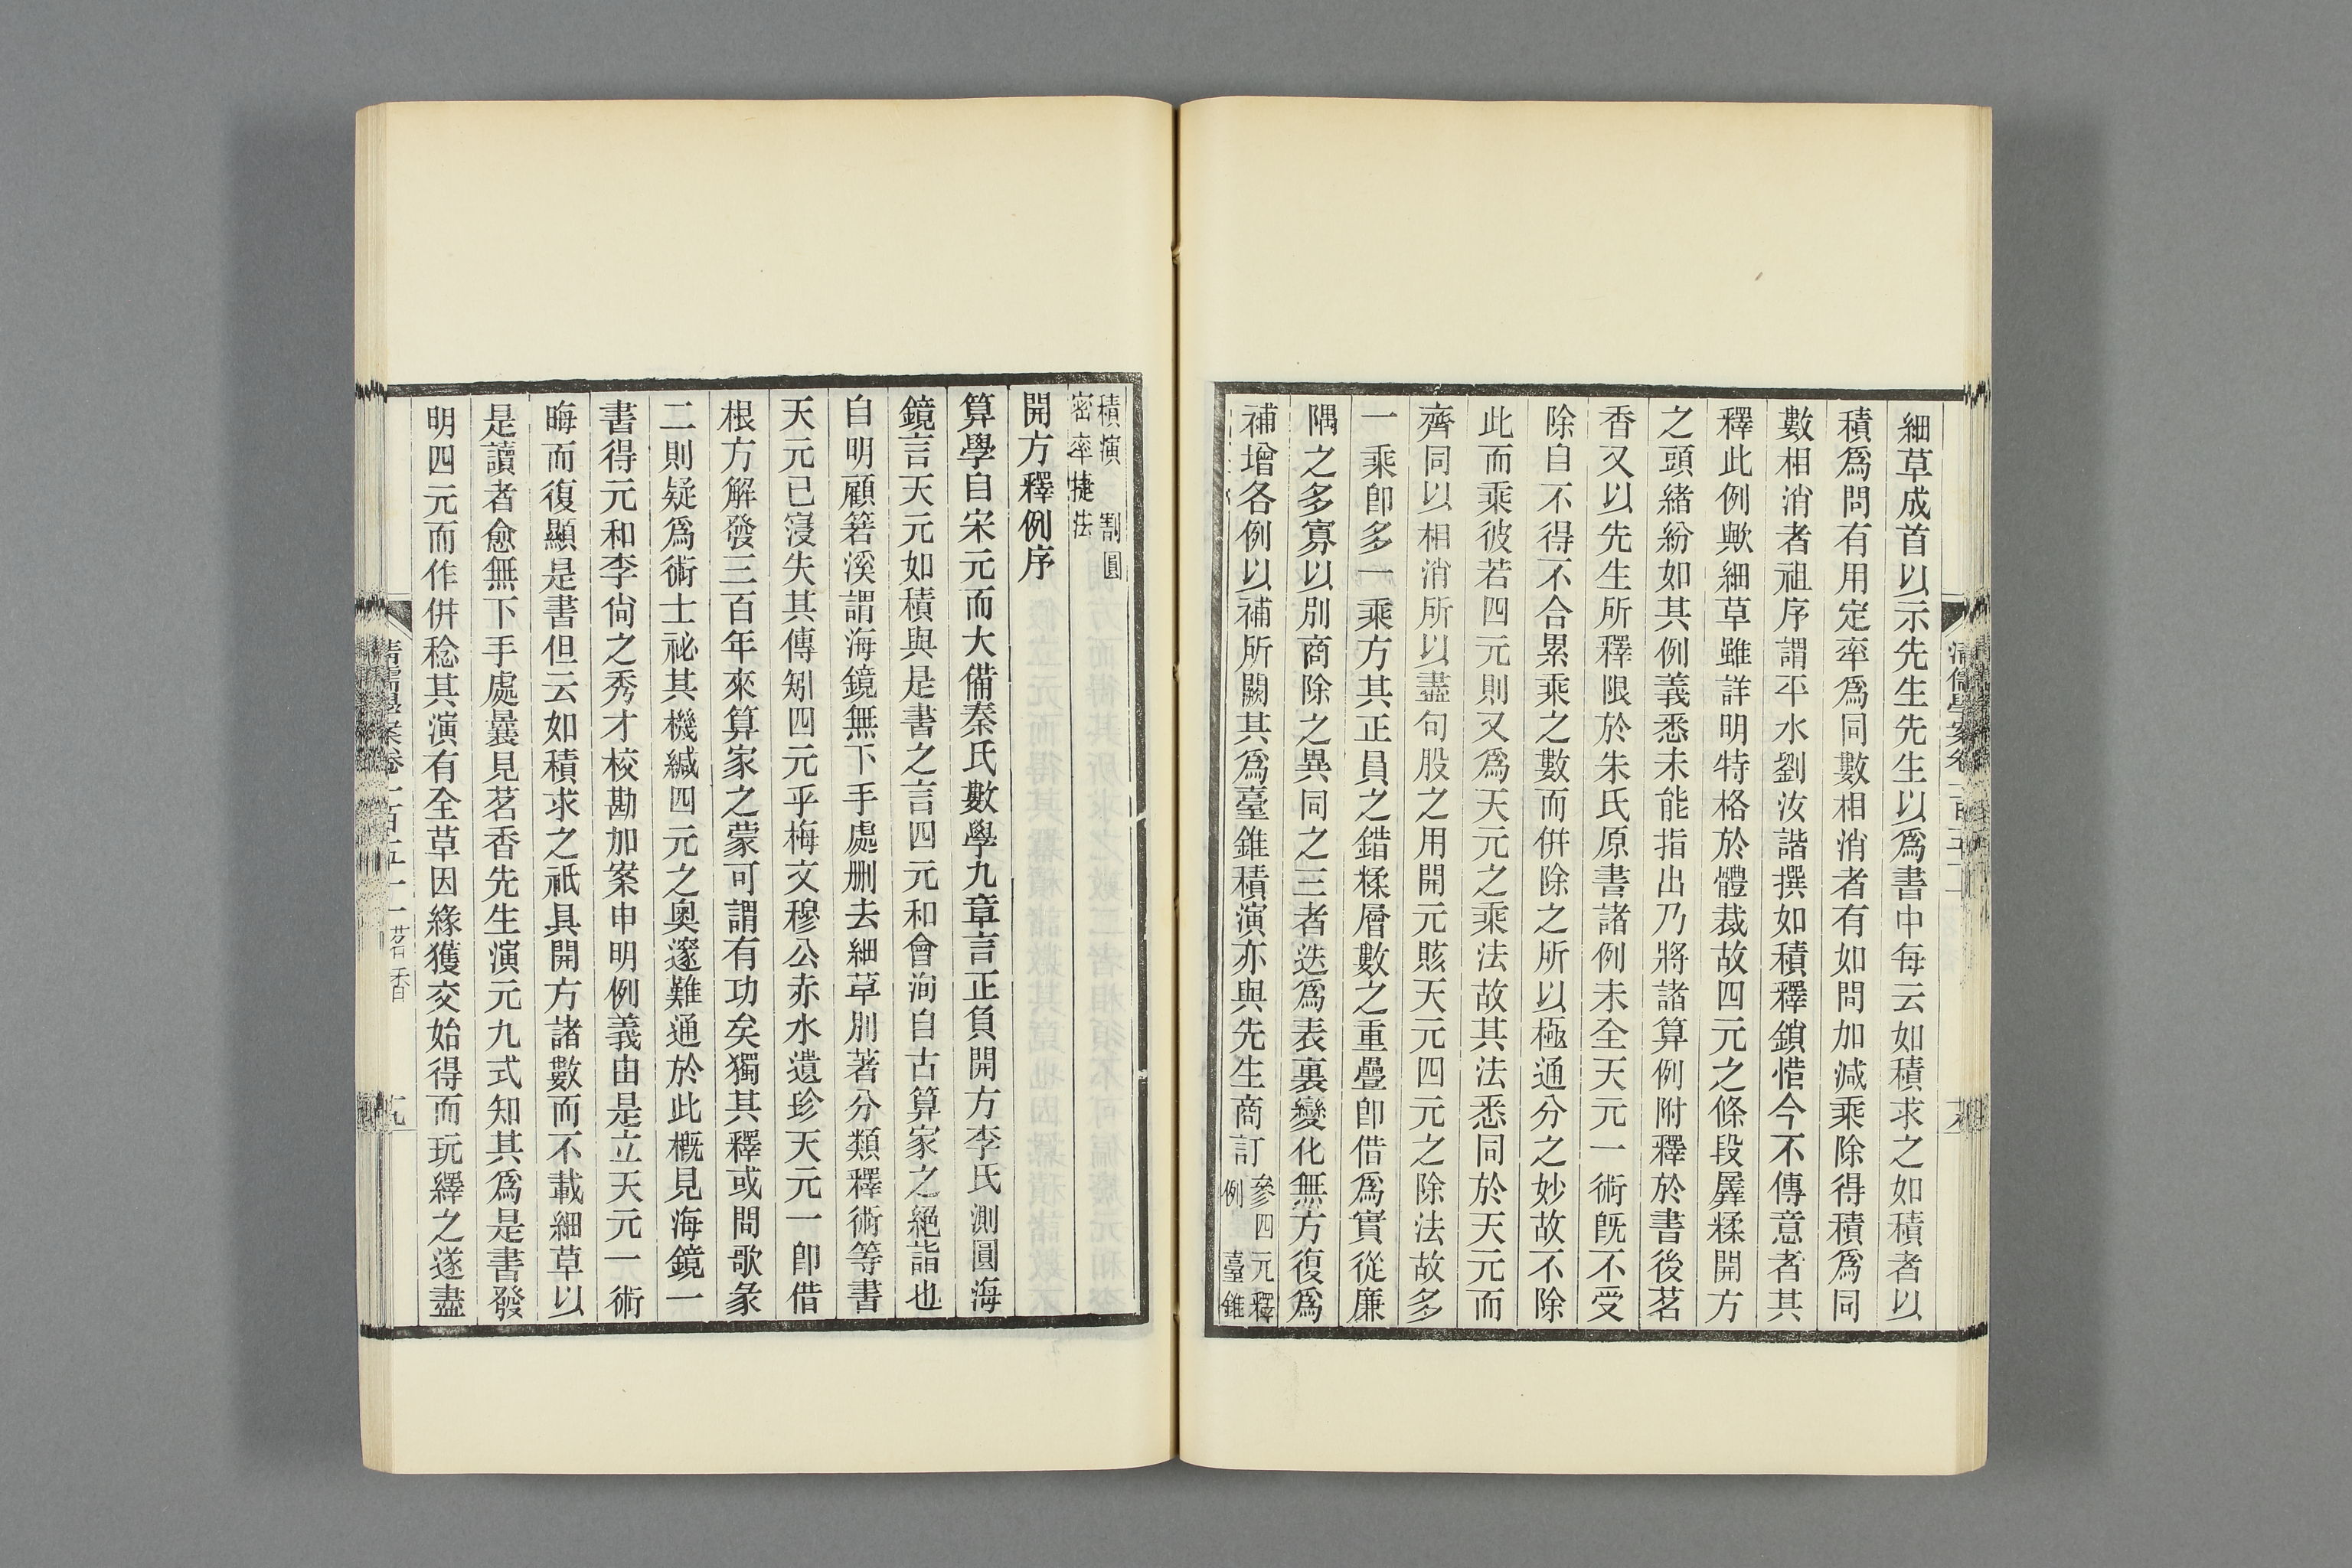 細草成首以示先生先生以爲書中每云如積求之如積者以
積爲問有用定率爲同數相消者有如問加減乘除得積爲同
數相消者祖序謂平水劉汝諧撰如積釋鎖惜今不傳意者其
釋此例歟細草雖詳明特格於體裁故四元之條段羼糅開方
之頭緒紛如其例義悉未能指出乃將諸算例附釋於書後茗
香又以先生所釋限於朱氏原書諸例未全天元一術既不受
除自不得不合累乘之數而併除之所以極通分之妙故不除
此而乘彼若四元則又爲天元之乘法故其法悉同於天元而
齊同以相消所以盡句股之用開元賅天元四元之除法故多
一乘卽多一乘方其正員之錯糅層數之重疊卽借爲實從廉
隅之多寡以別商除之異同之三者迭爲表裏變化無方復爲
補增各例以補所闕其爲臺錐積演亦與先生商訂參四元釋
例 臺錐
積演 割圓
密率捷法
開方釋例序
算學自宋元而大備秦氏數學九章言正負開方李氏測圓海
鏡言天元如積與是書之言四元和會洵自古算家之絕詣也
自明顧箬溪謂海鏡無下手處刪去細草別著分類釋術等書
天元已寖失其傳矧四元乎梅文穆公赤水遺珍天元一卽借
根方解發三百年來算家之蒙可謂有功矣獨其釋或問歌彖
二則疑爲術士祕其機緘四元之奧邃難通於此概見海鏡一
書得元和李尙之秀才校勘加案申明例義由是立天元一術
晦而復顯是書但云如積求之祇具開方諸數而不載細草以
是讀者愈無下手處曩見茗香先生演元九式知其爲是書發
明四元而作併稔其演有全草因緣獲交始得而玩繹之遂盡
清儒學案卷一百五十二 茗香 九